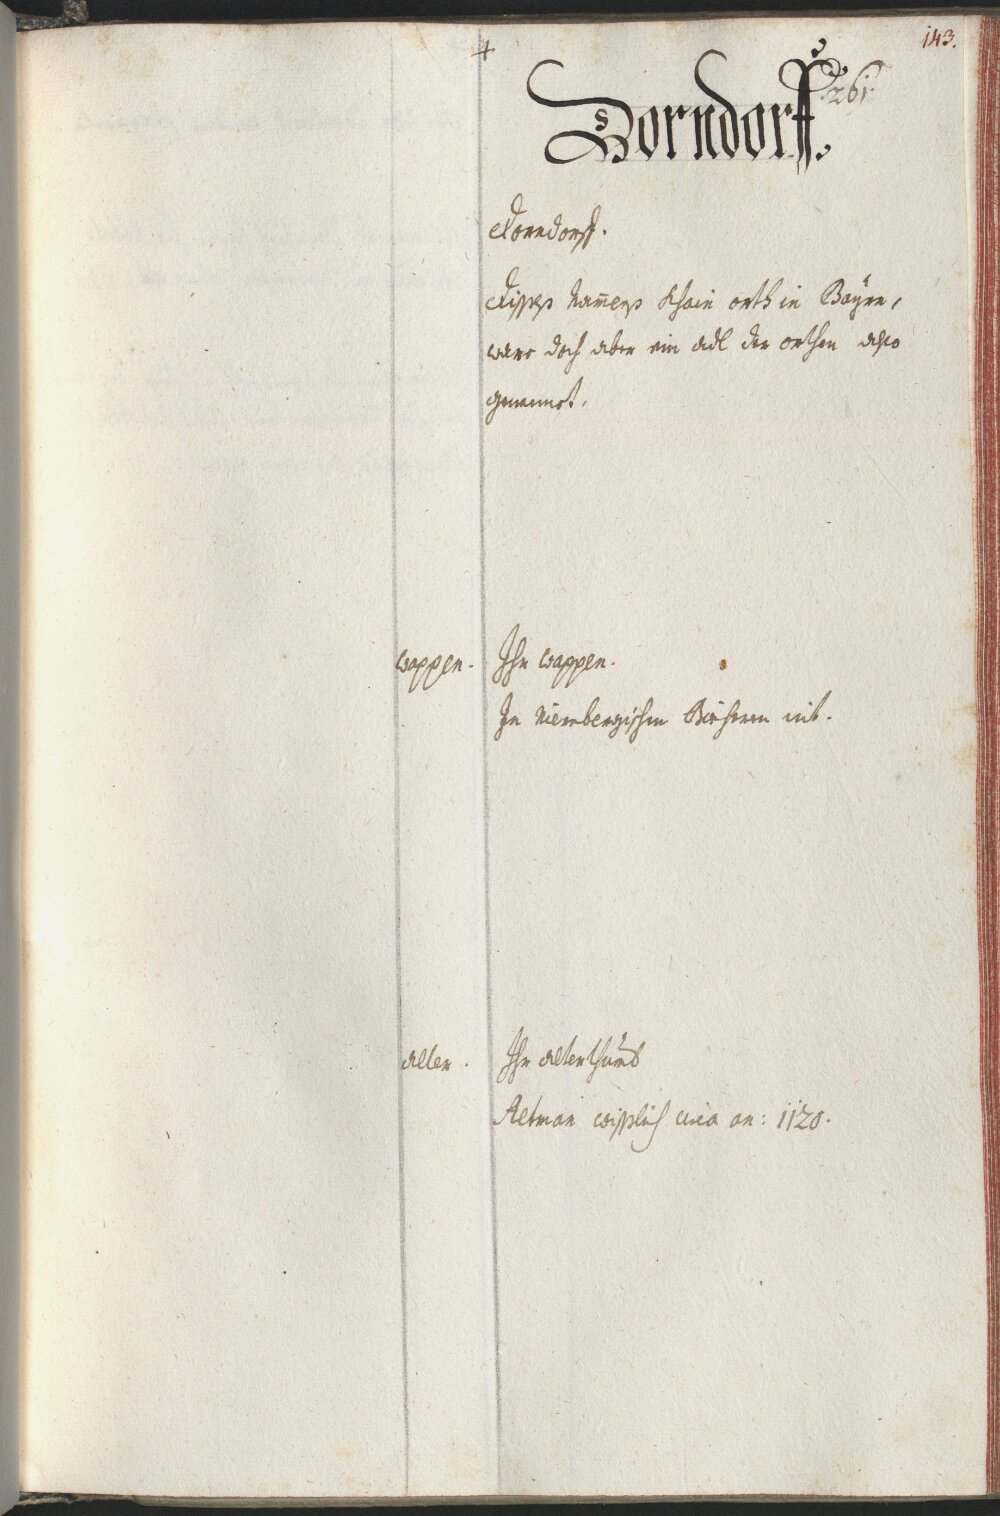 143.
261.
Dorndorff.
Dorndorff.
Disses Nam̃ens Khain orth in Bayrn,
ware doch aber ein adl der orthen also
genannet.
wappen. Ihr wappen.
In Niernbergischen Biecheren nit.
alter. Ihr alterthumb
Altman wisslich circa an: 1120.